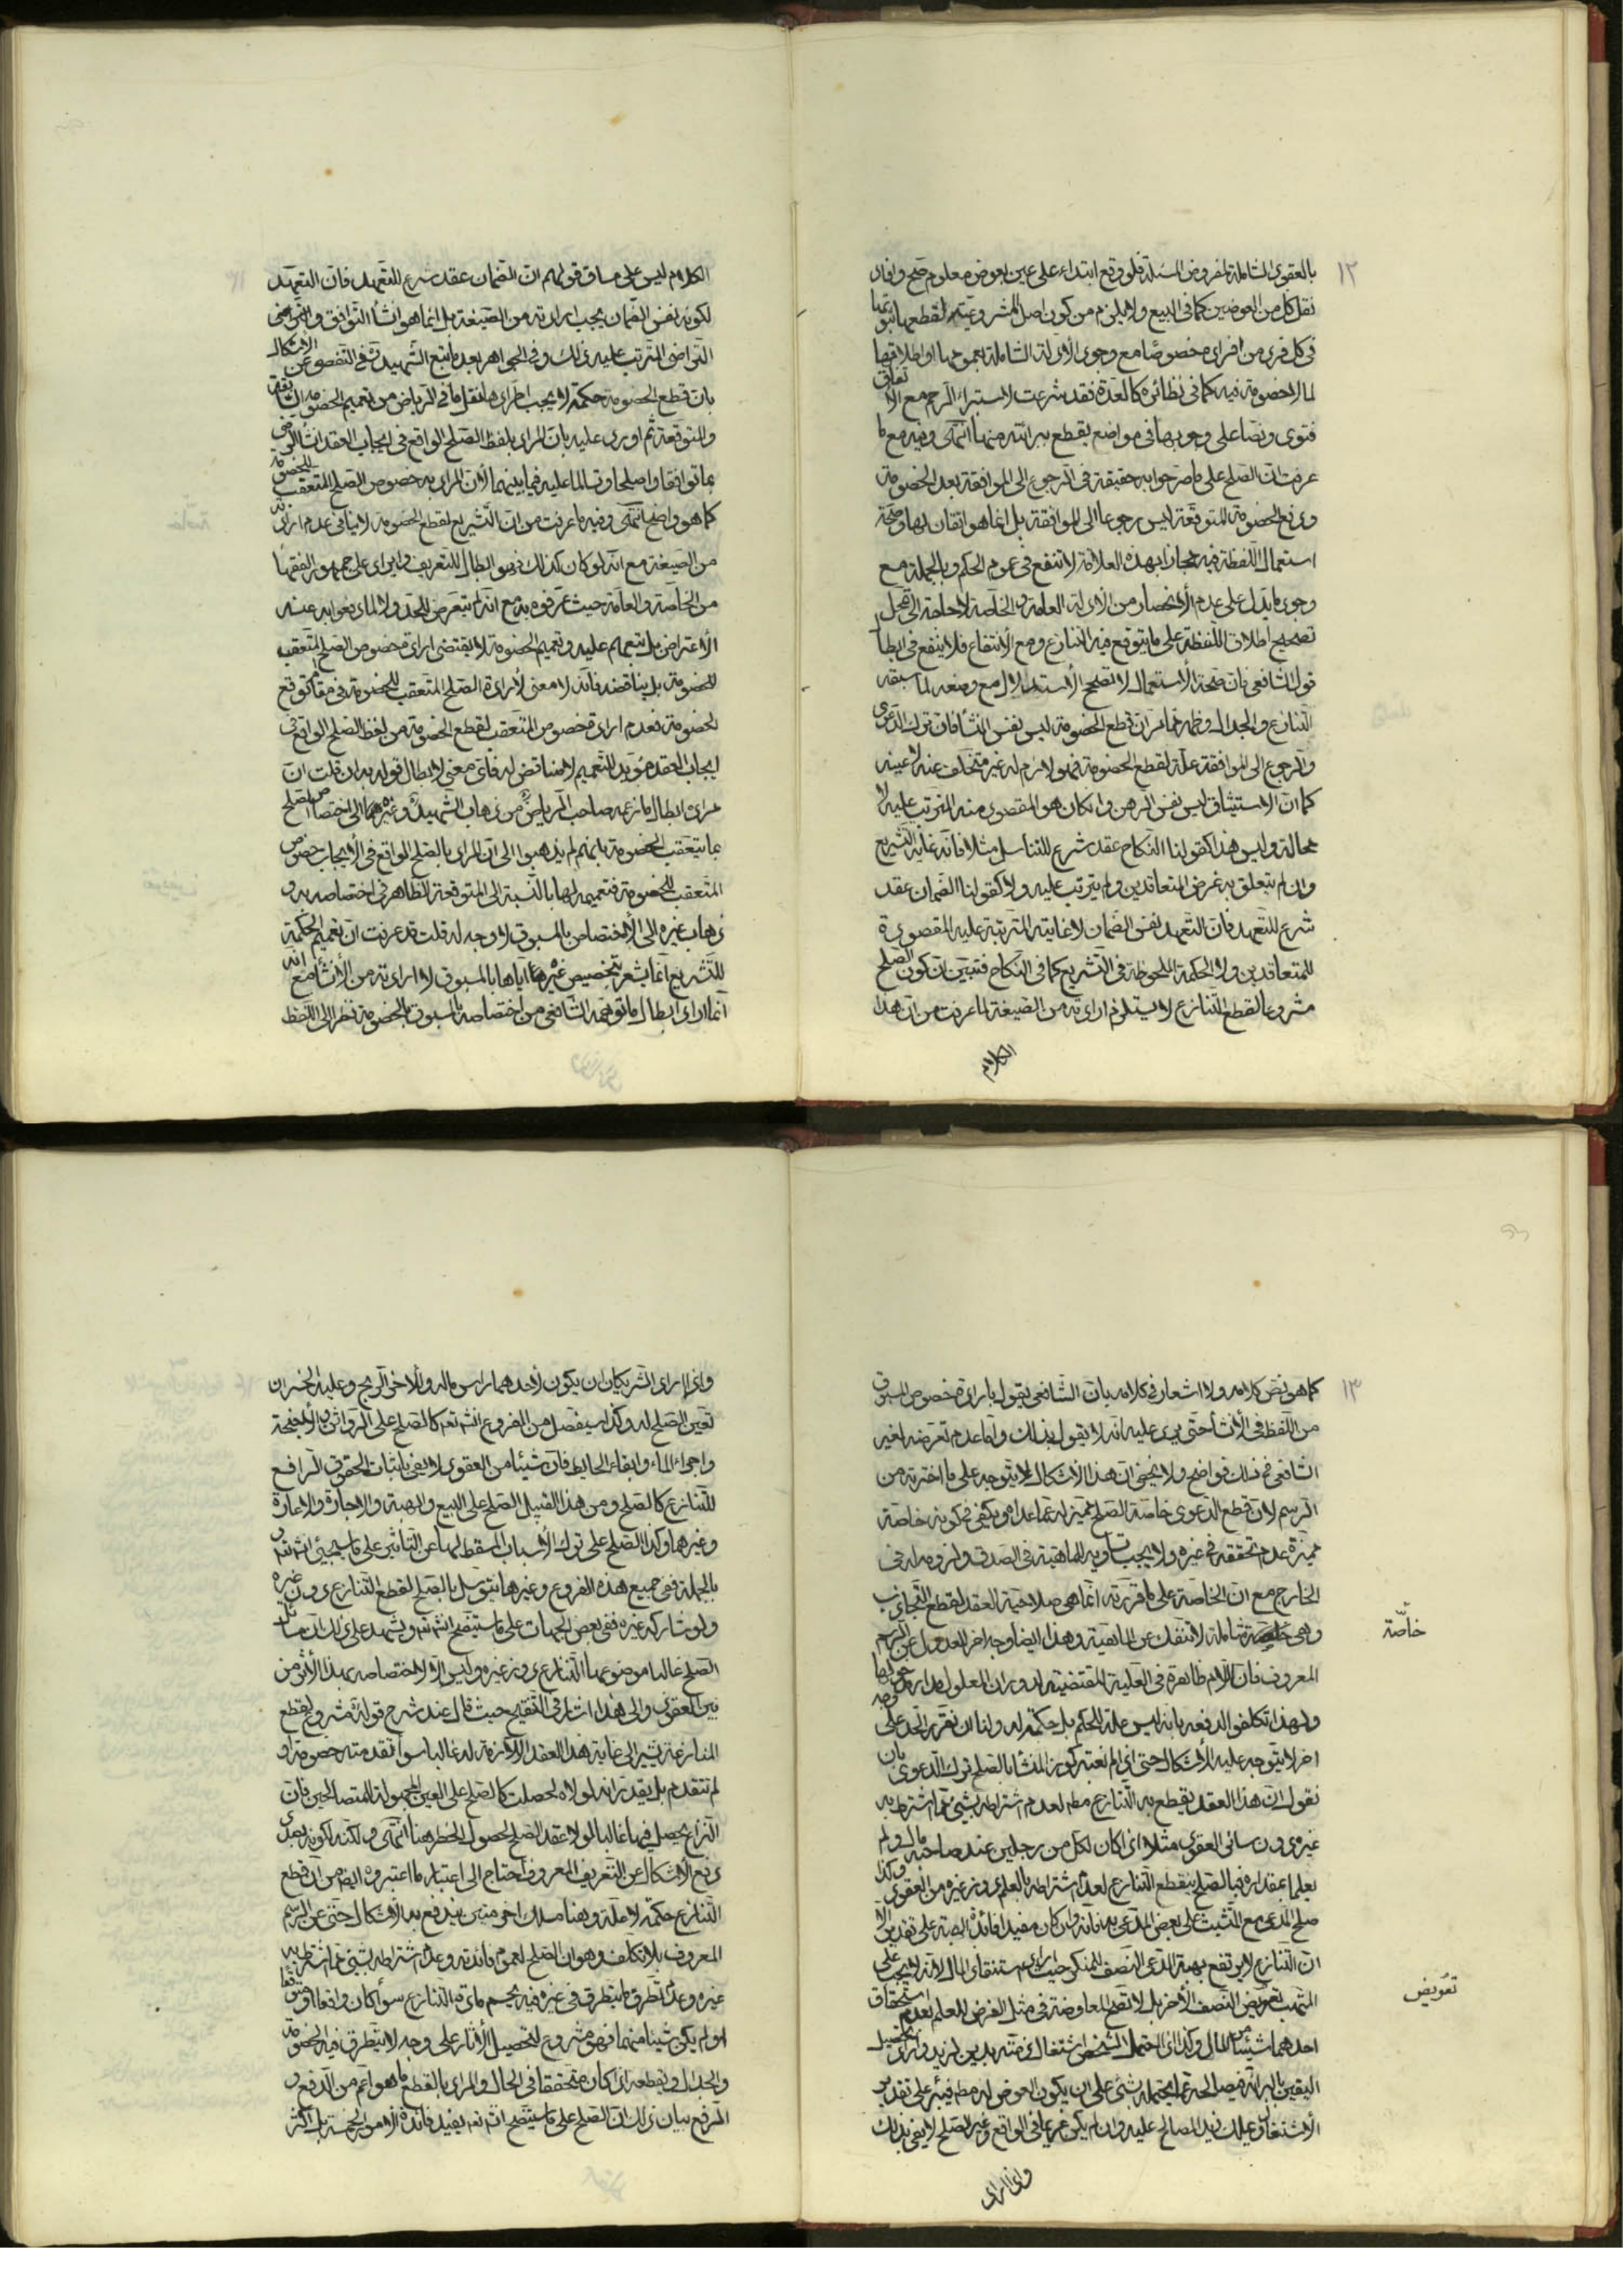 ١٢
بالعقود الشاملة لمفروض المسئلة فلو وقع ابتداء على عين بعوض معلوم صح وافاد
نقل كل من العوضين كما في البيع ولا يلزم من كون اصل المشروعية لقطعها ثبوتها
في كل فرد من افراده خصوصا مع وجود الادلة الشاملة بعمومها او اطلاقها
لما لا خصومة فيه كما في نظائره كالعدة فقد شرعت لاستبراء الرحم مع الاتفاق
فتوى ونصا على وجوبها في مواضع يقطع ببرائته منها انتهى وفيه مع ما
عرفت ان الصلح على ما صرحوا به حقيقة في الرجوع الى الموافقة بعد الخصومة
ودفع الخصومة المتوقعة ليس رجوعا الى الموافقة بل انما هو اتقان لها وصحة
استعمال اللفظة فيه مجازا بهذه العلاقة لا تنفع في عموم الحكم وبالجملة مع
وجود ما يدل على عدم الانحصار من الادلة العامة والخاصة لا حاجة الى تمحل
تصحيح اطلاق اللفظة على ما يتوقع فيه التنازع ومع الانتفاع فلا ينفع في ابطال
قول الشافعي فان صحة الاستعمال لا تصحح الاستدلال مع وضعه لما سبقه
التنازع والجدال وظهر مما مر ان قطع الخصومة ليس نفس المنشأ فان ترك الدعوى
والرجوع الى الموافقة علة لقطع الخصومة فهو لازم له غير متخلف عنه لا عينه
كما ان الاستيثاق ليس نفس الرهن وان كان هو المقصود منه المترتب عليه لا
محالة وليس هذا كقولنا النكاح عقد شرع للتناسل مثلا فانه غاية التشريع
وان لم يتعلق به غرض المتعاقدين ولم يترتب عليه ولا كقولنا الضمان عقد
شرع للتعهد فان التعهد نفس الضمان لا غايته المترتبة عليه المقصودة
للمتعاقدين ولا الحكمة الملحوظة في التشريع كما في النكاح فتبين ان كون الصلح
مشروعا لقطع التنازع لا يستلزم ارادته من الصيغة لما عرفت من ان هذا
الكلام
الكلام ليس على مساق قولهم ان الضمان عقد شرع للتعهد فان التعهد
لكونه نفس الضمان يجب ارادته من الصيغة بل انما هو انشاء التوافق والتراضي
التراضي المترتب عليه ذلك وفي الجواهر بعد ما تبع الشهيد ره في التفصي عن الاشكال
بان قطع الخصومة حكمة لا يجب اطرادها نقل ما في الرياض من تعميم الخصومة السابقة
والمتوقعة ثم اورد عليه بان المراد بلفظ الصلح الواقع في ايجاب العقد انشاء الرضى
بما توافقا واصطلحا وتسالما عليه فيما بينهما لا ان المراد به خصوص الصلح المتعقب للخصومة
كما هو واضح انتهى وفيه ما عرفت من ان التشريع لقطع الخصومة لا ينافي عدم ارادته
من الصيغة مع انه لو كان كذلك فهو ابطال للتعريف وايراد على جمهور الفقهاء
من الخاصة والعامة حيث عرفوه به مع انه لم يتعرض للحد ولا لما دفعوا به عنه
الاعتراض بل تبعهم عليه وتعميم الخصومة لا يقتضي ارادة خصوص الصلح المتعقب
للخصومة بل يناقضه فانه لا معنى لارادة الصلح المتعقب للخصومة في مقام توقع
الخصومة فعدم ارادة خصوص المتعقب لقطع الخصومة من لفظ الصلح الواقع في
ايجاب العقد مؤيد للتعميم لا مناقض له فاي معنى لابطال قوله به ان قلت ان
مراده ابطال ما زعمه صاحب الرياض من ذهاب الشهيد وغيرهما الى اختصاص الصلح
بما يتعقب الخصومة بانهم لم يذهبوا الى ان المراد بالصلح الواقع في الايجاب خصوص
المتعقب للخصومة فتعميمه لها بالنسبة الى المتوقعة الظاهر في اختصاصه به و
ذهاب غيره الى الاختصاص بالمسبوق لا وجه له قلت قد عرفت ان تعميم الحكمة
للتشريع انما يشعر بتخصيص غيرهما اياها بالمسبوق لا ارادته من الانشاء مع انه
انما اراد ابطال ما توهمه الشافعي من اختصاصه بالمسبوق بالخصومة نظرا الى اللفظ
١٣
كما هو نص كلامه ولا اشعار في كلامه بان الشافعي يقول بارادة خصوص المسبوق
من اللفظ في الانشاء حتى يرد عليه انه لا يقول بذلك واما عدم تعرضه لغير
الشافعي في ذلك فواضح ولا يخفى ان هذا الاشكال لا يتوجه على ما اخترته من
الرسم لان قطع الدعوى خاصة الصلح مميزة له عما عداه ويكفي في كونه خاصة
مميزة عدم تحققه في غيره ولا يجب تساويه للماهية في الصدق ولزومه له في
الخارج مع ان الخاصة على ما قررته انما هي صلاحية العقد لقطع التجاذب
وهي خاصة شاملة لا تنفك عن الماهية وهذا ايضا وجه اخر للعدول عن الرسم
خاصّة
المعروف فان اللام ظاهرة في العلية المقتضية لدوران المعلول مدارها
ولهذا تكلفوا لدفعه بانه ليس علة للحكم بل حكمة له ولنا ان نقرر الحد على وجه
اخر لا يتوجه عليه الاشكال حتى اذا لم نعتبر كون المنشأ بالصلح ترك الدعوى بان
نقول ان هذا العقد يقطع به التنازع مطلقا لعدم اشتراطه بشيء مما اشترط به
غيره دون سائر العقود مثلا اذا كان لكل من رجلين عند صاحبه مال ولم
يعلما بمقداره فبالصلح ينقطع التنازع لعدم اشتراطه بالعلم دون غيره من العقود وكذا
صلح المدعي مع المتشبث على بعض المدعى به فانه وان كان مفيدا فائدة الهبة على تقدير الا
ان التنازع لا يرتفع بهبة المدعي النصف للمنكر حيث اراد استنقاذ المال لانه لا يجب على
المتهب تعويض النصف الاخر بل لا تصح المعاوضة في مثل الفرض للعلم بعدم استحقاق
تعويض
احدهما شيئا من المال وكذا اذا احتمل الشخص اشتغال ذمته بدين لزيد واراد تحصيل
اليقين بالبرائة فيصالحه عما يحتمله بشيء على ان يكون العوض له مطلقا فيبرء على تقدير
الاشتغال ويملك زيد المصالح عليه وان لم يكن غريما في الواقع وغير الصلح لا يفي بذلك
واذا اراد
واذا اراد الشريكان ان يكون لاحدهما راس ماله وللاخر الربح وعليه الخسران
تعين الصلح له وكذا سيفصل من الفروع انشاء الله تعالى كالصلح على الرواشن والاجنحة
واجراء الماء وابقاء الحايط فان شيئا من العقود لا يفي باثبات الحقوق الرافع
للتنازع كالصلح ومن هذا القبيل الصلح على البيع والهبة والاجارة والاعارة
وغيرها وكذا الصلح على ترك الاسباب المسقط لها عن التاثير على ما سيجيئ انشاء الله و
بالجملة ففي جميع هذه الفروع وغيرها يتوسل بالصلح لقطع التنازع دون غيره
ولو شاركه غيره ففي بعض الجهات على ما ستيضح انشاء الله ويشهد على ذلك ان مسائل
الصلح غالبا موضوعها التنازع دون غيره وليس الا لاختصاصه بهذا الاثر من
بين العقود والى هذا اشار في التنقيح حيث قال عند شرح قوله شرع لقطع
المنازعة يشير الى غاية هذا العقد اللازمة له غالبا سواء تقدمته خصومة او
لم تتقدم بل يقدر انه لولاه لحصلت كالصلح على العين المجهولة للمتصالحين فان
النزاع يحصل فيها غالبا لولا عقد الصلح لحصول الخطر هنا انتهى ولكنه لكونه بصدد
دفع الاشكال عن التعريف المعروف احتاج الى اعتبار ما اعتبروه ايضا من ان قطع
التنازع حكمة لا علة وهنا مسلك اخر متين يندفع به الاشكال حتى عن الرسم
المعروف بلا تكلف وهو ان الصلح لعموم فائدته وعدم اشتراطه بشيء مما اشترط به
غيره وعدم تطرق ما يتطرق في غيره فيه يحسم مادة التنازع سواء كان واقعا او متوقعا
او لم يكن شيئا منهما فهو مشروع لتحصيل الاثار على وجه لا يتطرق فيه الخصومة
والجدال ويقطعه اذا كان متحققا في الحال والمراد بالقطع ما هو اعم من الدفع و
الرفع بيان ذلك ان الصلح على ما سيتضح انشاء الله تعالى يفيد فائدة الامور الخمسة بل اكثر